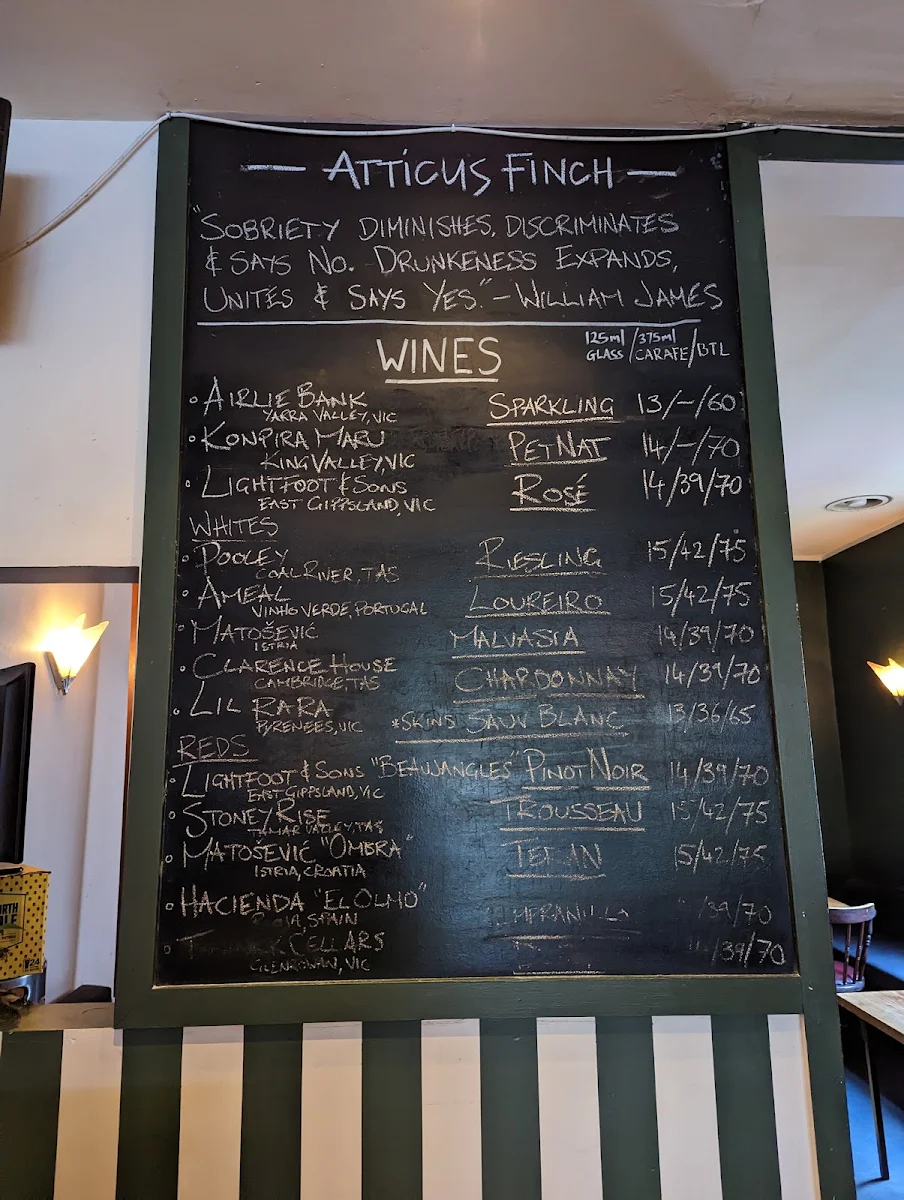 — ATTICUS FINCH —
"SOBRIETY DIMINISHES, DISCRIMINATES
& SAYS NO. DRUNKENESS EXPANDS,
UNITES & SAYS YES." - WILLIAM JAMES
WINES 125ml GLASS / 375ml CARAFE / BTL
• AIRLIE BANK SPARKLING 13/-/60
YARRA VALLEY, VIC
• KONPIRA MARU PETNAT 14/-/70
KING VALLEY, VIC
• LIGHTFOOT & SONS ROSÉ 14/39/70
EAST GIPPSLAND, VIC
WHITES
• POOLEY RIESLING 15/42/75
COAL RIVER, TAS
• AMEAL LOUREIRO 15/42/75
VINHO VERDE, PORTUGAL
• MATOŠEVIĆ MALVASIA 14/39/70
ISTRIA
• CLARENCE HOUSE CHARDONNAY 14/39/70
CAMBRIDGE, TAS
• LIL RARA *SKINS* SAUV BLANC 13/36/65
PYRENEES, VIC
REDS
• LIGHTFOOT & SONS "BEAUJANGLES" PINOT NOIR 14/39/70
EAST GIPPSLAND, VIC
• STONEY RISE TROUSSEAU 15/42/75
TAMAR VALLEY, TAS
• MATOŠEVIĆ "OMBRA" TERAN 15/42/75
ISTRIA, CROATIA
• HACIENDA "EL OLMO" /39/70
SPAIN
• CELLARS /39/70
GLENROWAN, VIC